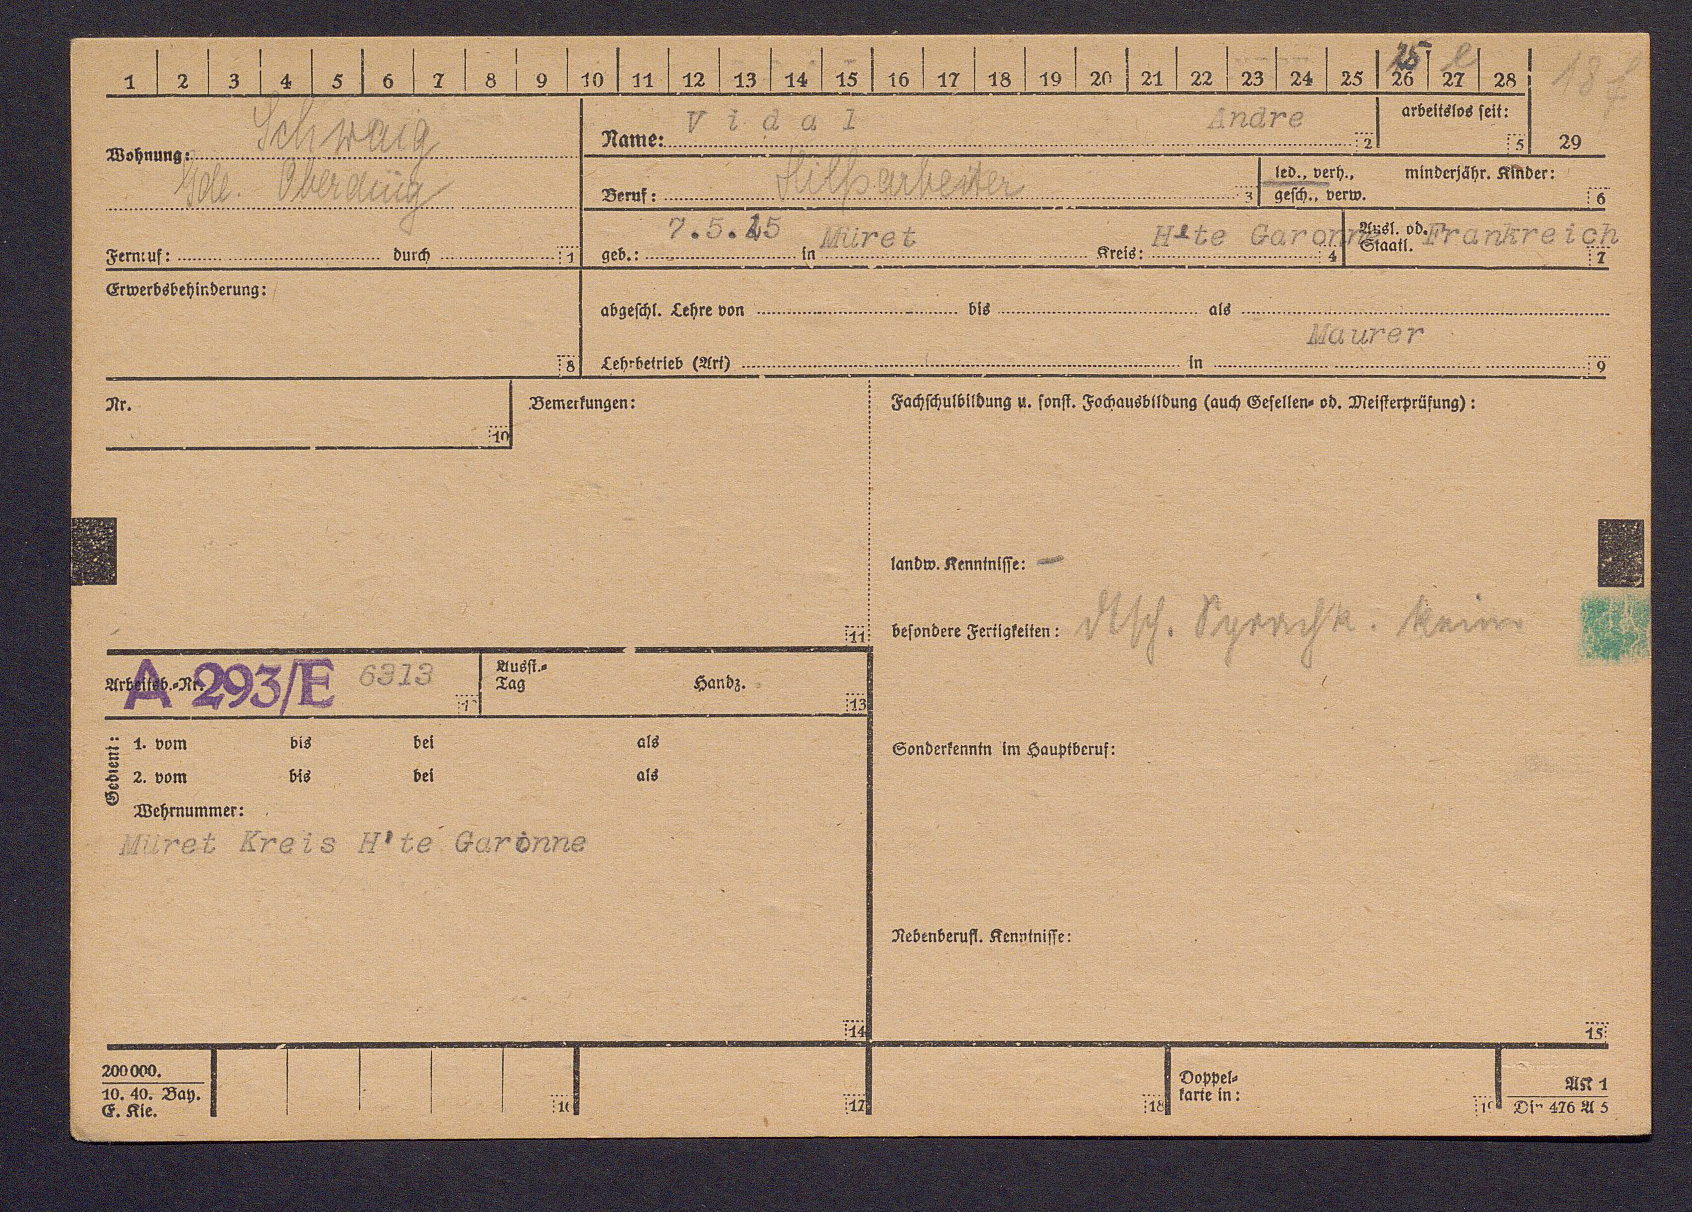 1 2 3 4 5 6 7 8 9 10 11 12 13 14 15 16 17 18 19 20 21 22 23 24 25 26 27 28
15
Wohnung: Schwaig
Gde. Oberding
Name: Vidal Andre 2
arbeitslos seit: 5
29
Beruf: Hilfsarbeiter 3
led., verh., gesch., verw.
minderjähr. Kinder: 6
Fernruf: durch 1
geb.: 7.5.25 in Müret Kreis: H'te Garonne 4
Ausl. od. Staatl. Frankreich 7
Erwerbsbehinderung:
8
abgeschl. Lehre von bis als
Maurer
Lehrbetrieb (Art) in 9
Nr.
10
Bemerkungen:
11
Fachschulbildung u. sonst. Fachausbildung (auch Gesellen- od. Meisterprüfung):
landw. Kenntnisse: —
besondere Fertigkeiten: dtsch. Sprachk. keine
Arbeitsb.-Nr. A 293/E 6313
Ausst.-Tag Handz. 13
Gedient:
1. vom bis bei als
2. vom bis bei als
Wehrnummer:
Müret Kreis H'te Garonne
14
Sonderkenntn im Hauptberuf:
Nebenberufl. Kenntnisse:
15
200 000.
10. 40. Bay.
E. Kie.
16
17
18
Doppelkarte in:
19
AK 1
Din 476 A 5